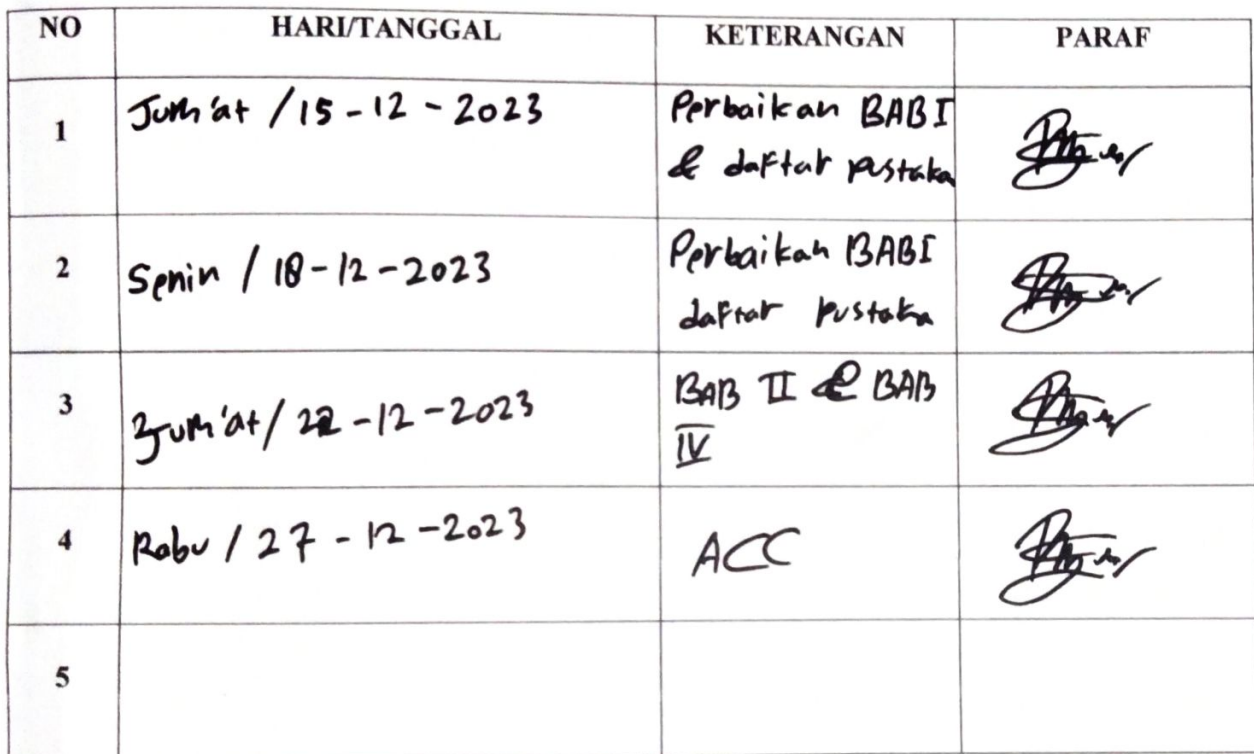 NO HARI/TANGGAL KETERANGAN PARAF
1 Jum'at / 15-12-2023 Perbaikan BAB I
& daftar pustaka
2 Senin / 18-12-2023 Perbaikan BAB I
daftar pustaka
3 Jum'at / 22-12-2023 BAB II & BAB
IV
4 Rabu / 27-12-2023 ACC
5